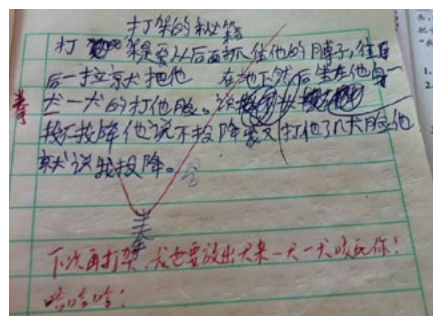 打架的秘籍
打架要从后面抓住他的脖子,往
后一拉就把他 在地下然后坐在他身一
犬一犬的打他脸。说
投不投降他说不投降就又打他几犬脸他
就说我投降。
拳
美
下次再打架,我也要放出犬来一犬一犬咬死你!
哈哈哈!